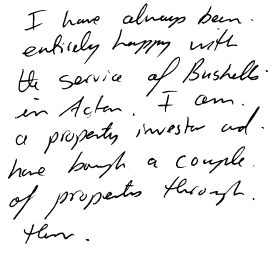 I have always been
entirely happy with
the service of Bushells
in Acton. I am
a property investor and
have bough a couple
of properties through
them.